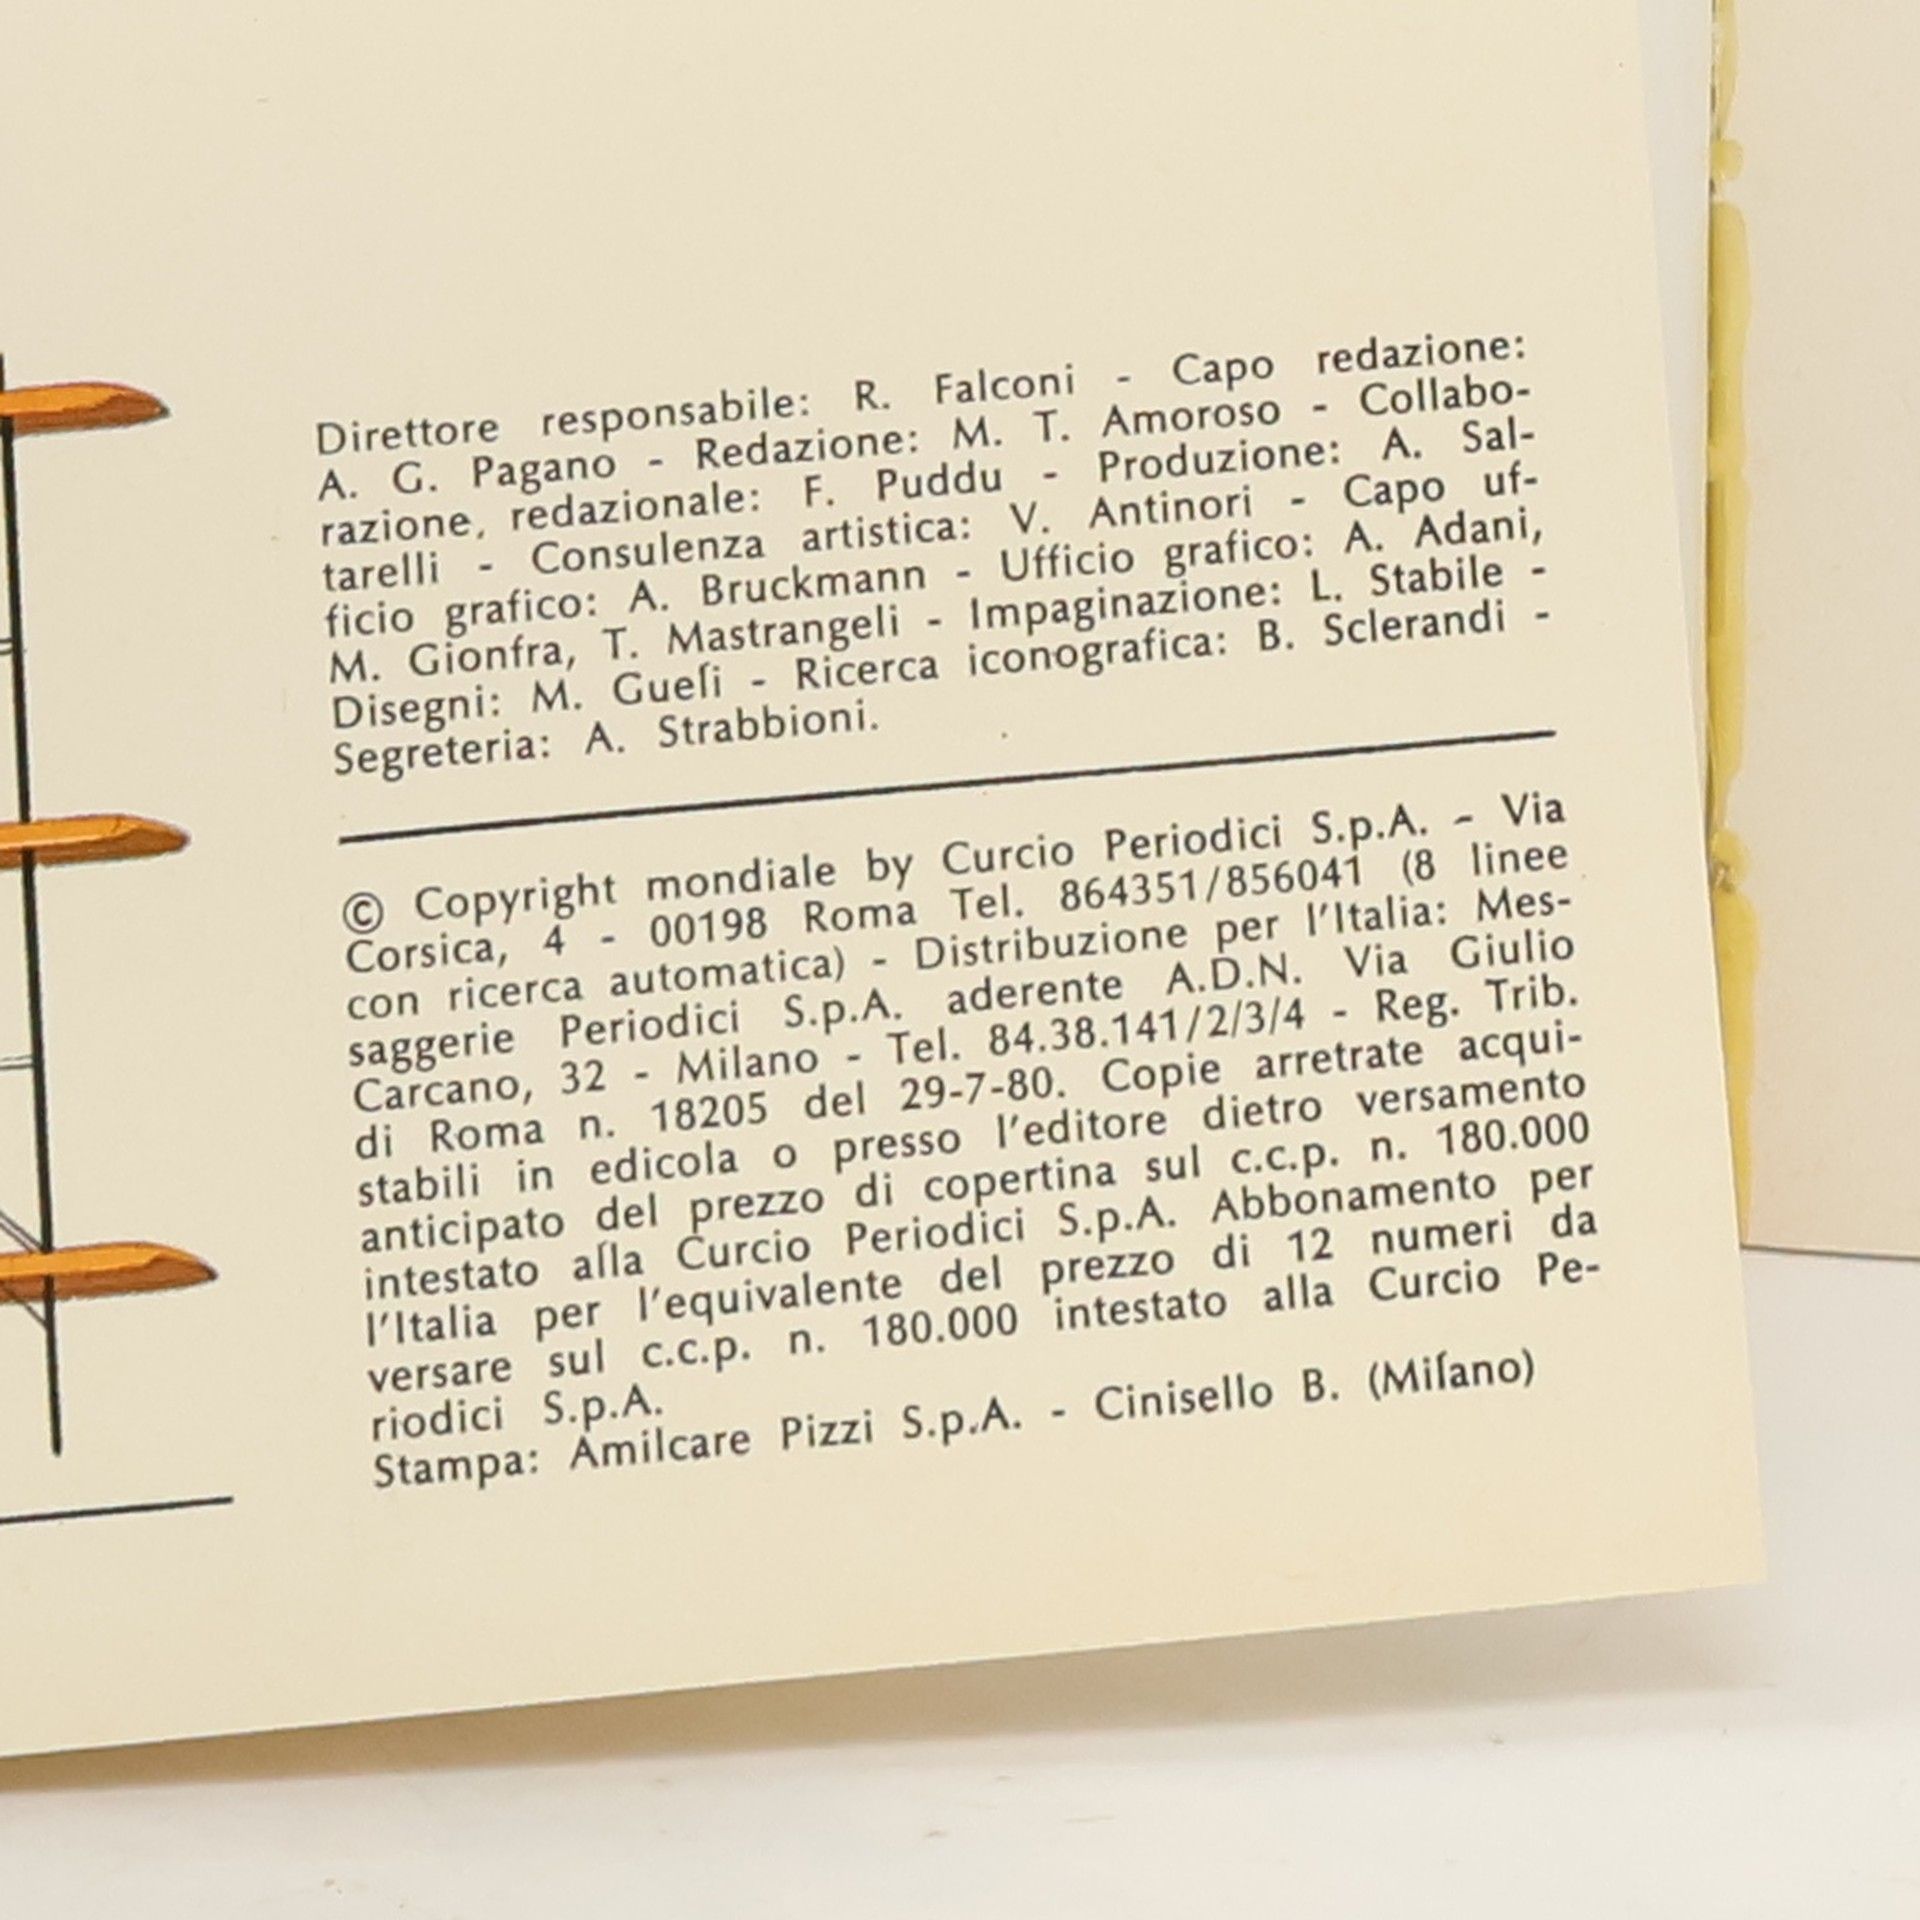 Direttore responsabile: R. Falconi - Capo redazione:
A. G. Pagano - Redazione: M. T. Amoroso - Collabo-
razione, redazionale: F. Puddu - Produzione: A. Sal-
tarelli - Consulenza artistica: V. Antinori - Capo uf-
ficio grafico: A. Bruckmann - Ufficio grafico: A. Adani,
M. Gionfra, T. Mastrangeli - Impaginazione: L. Stabile -
Disegni: M. Gueli - Ricerca iconografica: B. Sclerandi -
Segreteria: A. Strabbioni.
© Copyright mondiale by Curcio Periodici S.p.A. - Via
Corsica, 4 - 00198 Roma Tel. 864351/856041 (8 linee
con ricerca automatica) - Distribuzione per l'Italia: Mes-
saggerie Periodici S.p.A. aderente A.D.N. Via Giulio
Carcano, 32 - Milano - Tel. 84.38.141/2/3/4 - Reg. Trib.
di Roma n. 18205 del 29-7-80. Copie arretrate acqui-
stabili in edicola o presso l'editore dietro versamento
anticipato del prezzo di copertina sul c.c.p. n. 180.000
intestato alla Curcio Periodici S.p.A. Abbonamento per
l'Italia per l'equivalente del prezzo di 12 numeri da
versare sul c.c.p. n. 180.000 intestato alla Curcio Pe-
riodici S.p.A.
Stampa: Amilcare Pizzi S.p.A. - Cinisello B. (Milano)